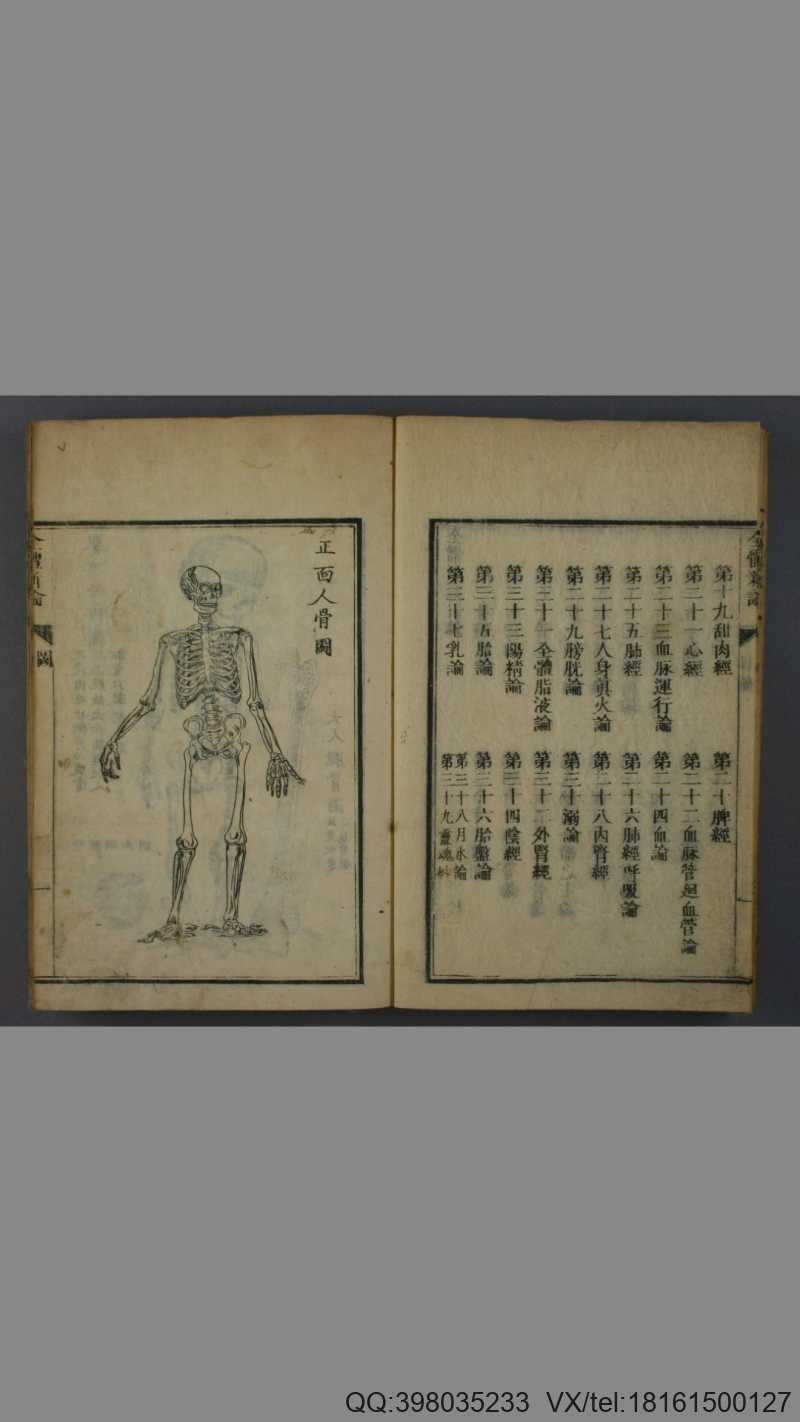 第十九甜肉經
第二十脾經
第二十一心經
第二十二血脉管廻血管論
第二十三血脉運行論
第二十四血論
第二十五肺經
第二十六肺經呼吸論
第二十七人身眞火論
第二十八內腎經
第二十九膀胱論
第三十溺論
第三十一全體脂液論
第三十二外腎經
第三十三陽精論
第三十四陰經
第三十五胎論
第三十六胎盤論
第三十七乳論
第三十八月水論
第三十九靈魂
正面人骨圖
圖
一
QQ:398035233 VX/tel:18161500127